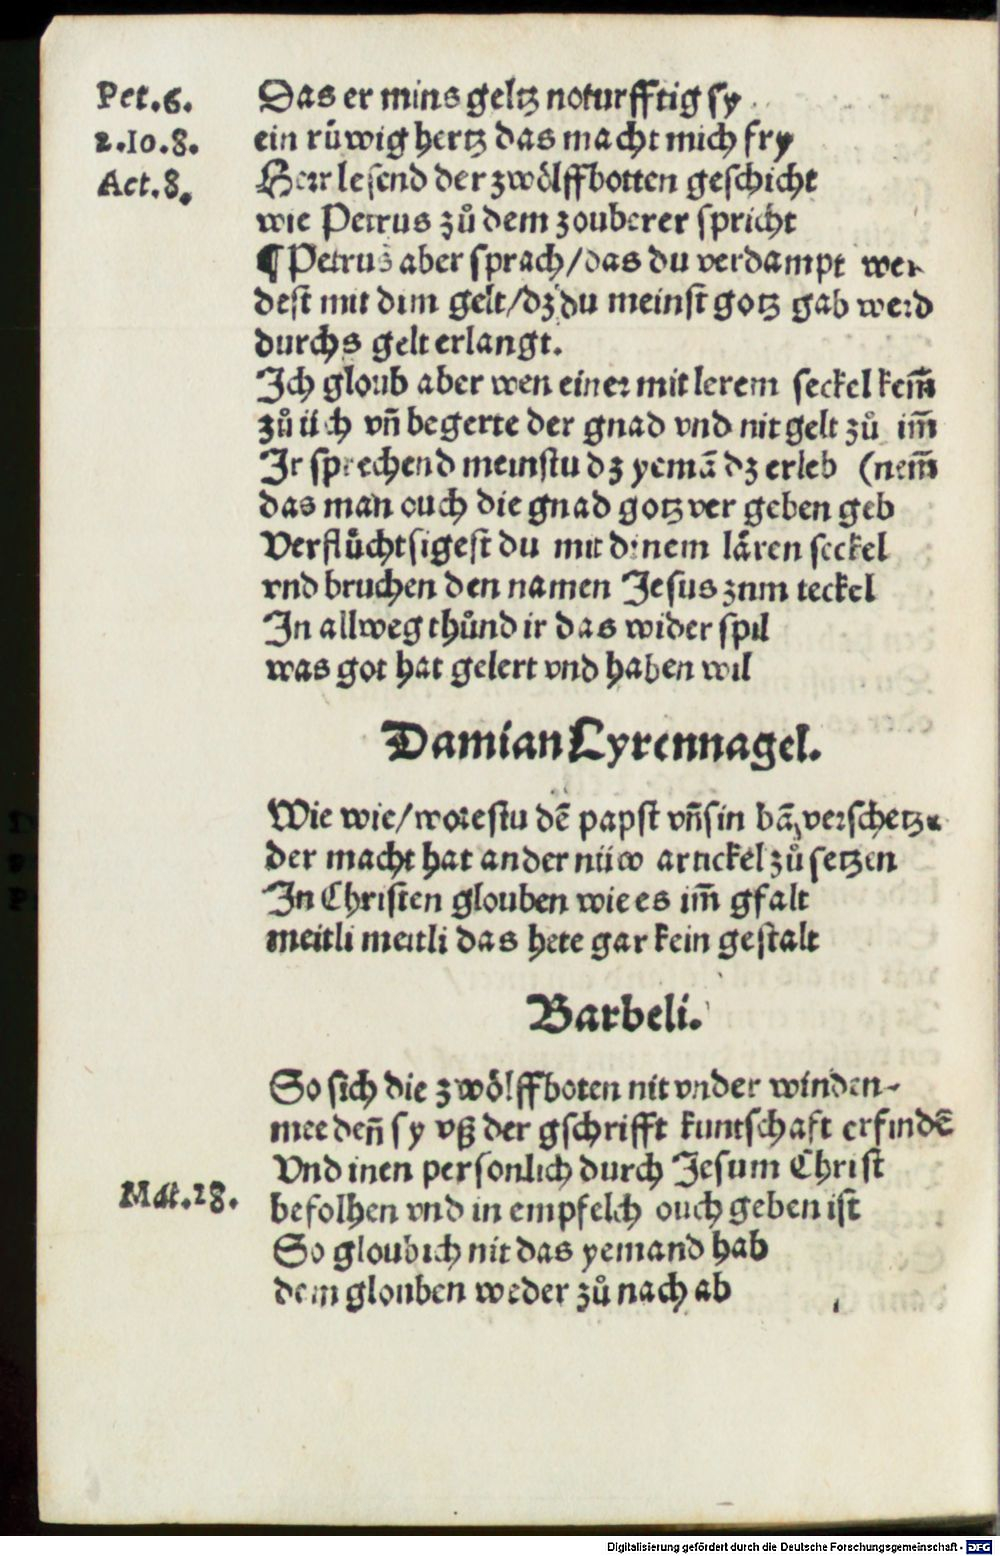 Pet.6.
Das er mins geltz noturfftig sy
2.Io.8.
ein rüwig hertz das macht mich fry
Act.8.
Herr lesend der zwölffbotten geschicht
wie Petrus zů dem zouberer spricht
¶ Petrus aber sprach/das du verdampt wer
dest mit dim gelt/dz du meinst gotz gab werd
durchs gelt erlangt.
Ich gloub aber wen einer mit lerem seckel kem̄
zů üch vn̄ begerte der gnad vnd nit gelt zů im̄
Ir sprechend meinstu dz yemā dz erleb (nem̄
das man ouch die gnad gotz ver geben geb
Verflůcht sigest du mit dinem lären seckel
vnd bruchen den namen Jesus znm teckel
In allweg thůnd ir das wider spil
was got hat gelert vnd haben wil
Damian Lyrennagel.
Wie wie/worestu dē papst vn̄ sin bā verschetzē
der macht hat ander nüw artickel zů setzen
In Christen glouben wie es im̄ gfalt
meitli meitli das hete gar kein gestalt
Barbeli.
So sich die zwölffboten nit vnder winden
mee den̄ sy vß der gschrifft kuntschaft erfindē
Vnd inen personlich durch Jesum Christ
Mat.28.
befolhen vnd in empfelch ouch geben ist
So gloub ich nit das yemand hab
dem glouben weder zů nach ab
Digitalisierung gefördert durch die Deutsche Forschungsgemeinschaft - DFG